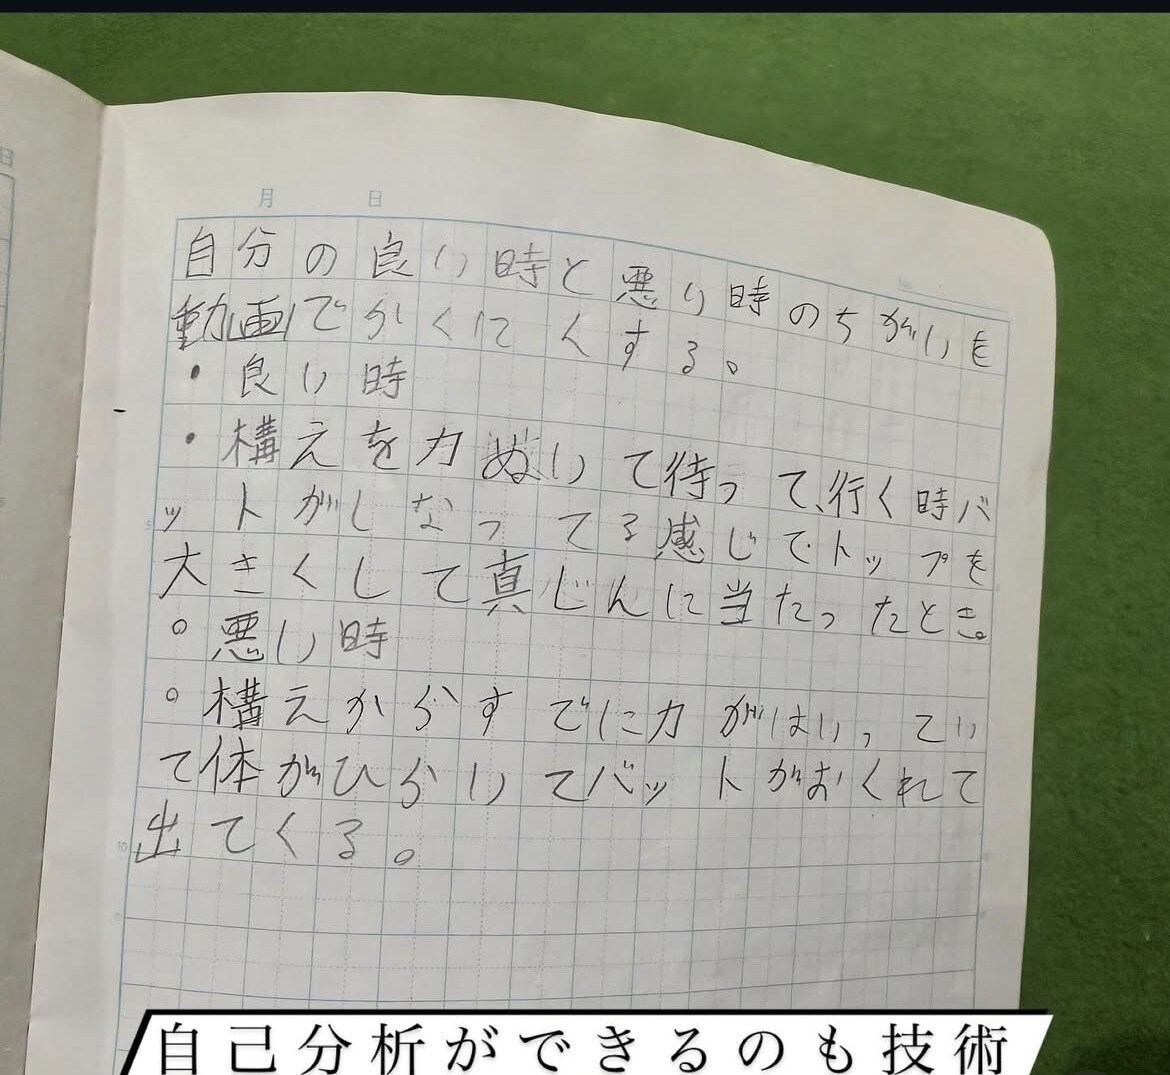 月 日
No.
自分の良い時と悪い時のちがいを
動画でかくにんする。
・良い時
・構えを力ぬいて待って、行く時バ
ットがしなってる感じでトップを
大きくして真じんに当たったとき。
。悪い時
。構えからすでに力がはいってい
て体がひらいてバットがおくれて
出てくる。
5
10
日
自己分析ができるのも技術